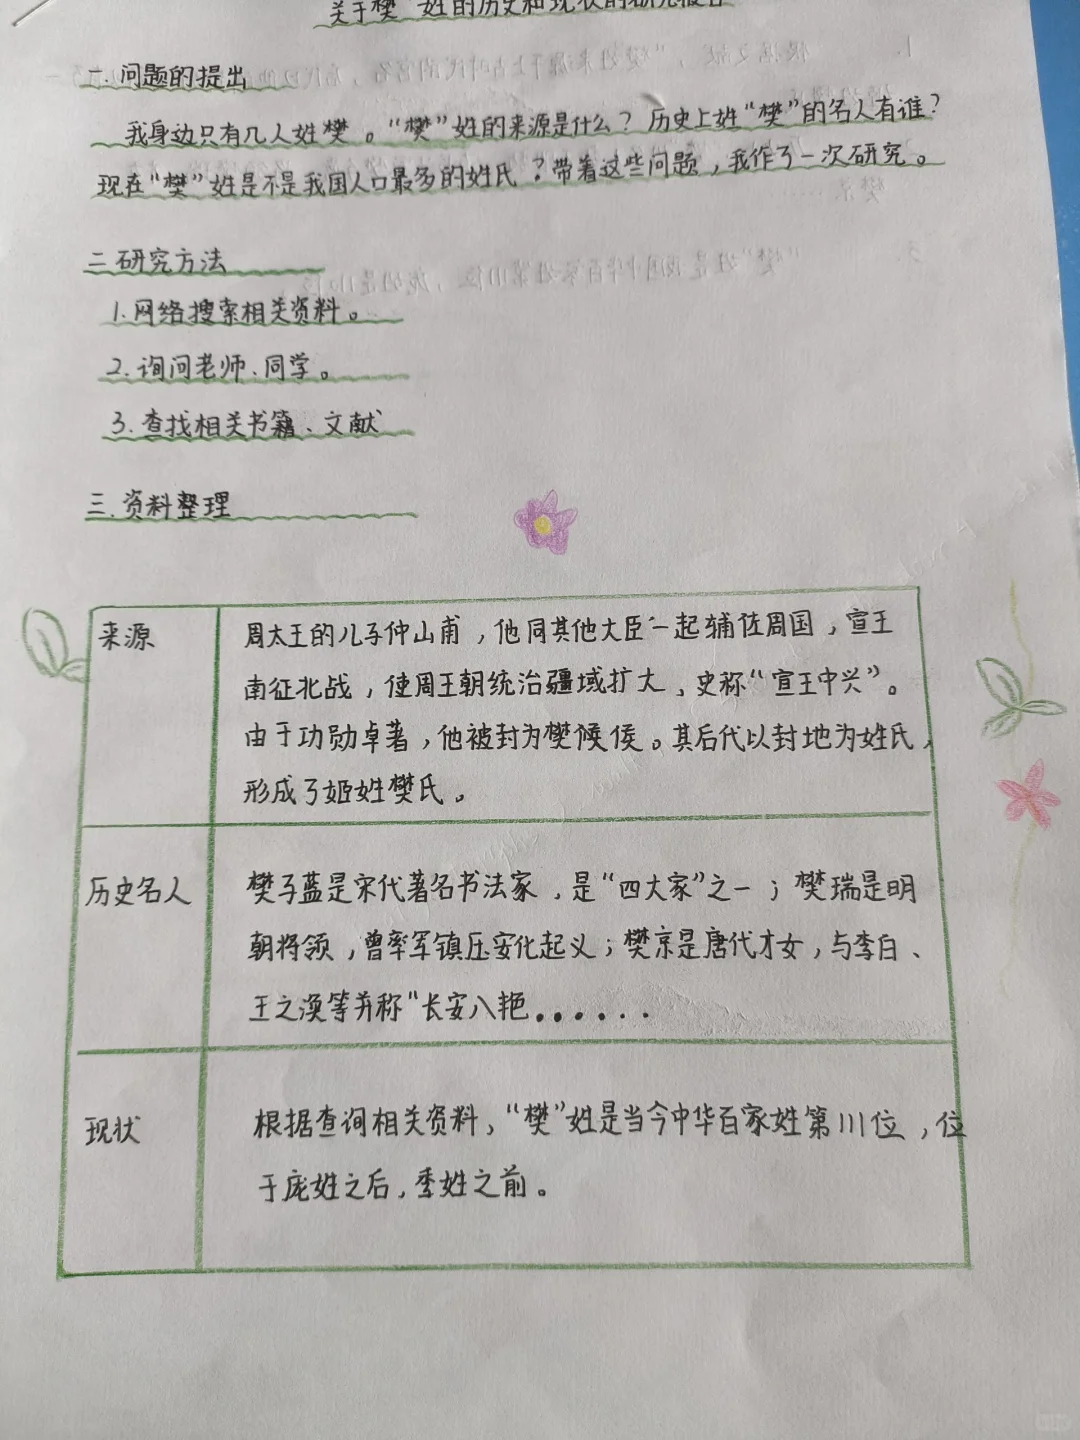 关于樊"姓的历史和现状的研究报告
一.问题的提出
我身边只有几人姓樊。"樊"姓的来源是什么?历史上姓"樊"的名人有谁?
现在"樊"姓是不是我国人口最多的姓氏?带着这些问题,我作了一次研究。
二研究方法
1.网络搜索相关资料。
2.询问老师、同学。
3.查找相关书籍、文献
三.资料整理
来源
周太王的儿子仲山甫,他同其他大臣一起辅佐周国,宣王
南征北战,使周王朝统治疆域扩大、史称"宣王中兴"。
由于功勋卓著,他被封为樊候侯。其后代以封地为姓氏,
形成了姬姓樊氏。
历史名人
樊子蓝是宋代著名书法家,是"四大家"之一;樊瑞是明
朝将领,曾率军镇压安化起义;樊京是唐代才女,与李白、
王之涣等并称"长安八艳......
现状
根据查询相关资料,"樊"姓是当今中华百家姓第111位,位
于庞姓之后,季姓之前。